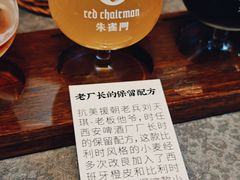 red chairman
朱雀门
老厂长的保留配方
抗美援朝老兵刘天
琪-老板他爷,时任
西安啤酒厂厂长时
的保留配方,这款比
利时风格的小麦经
多次改良加入了西
班牙橙皮和比利时